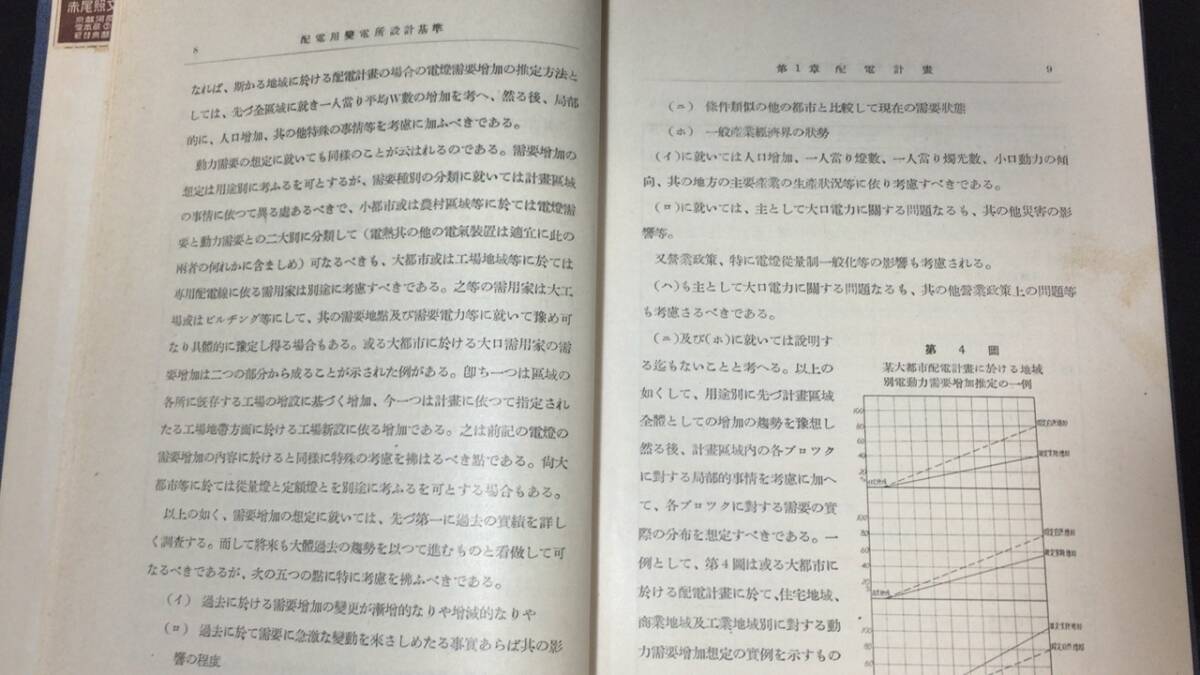 赤尾照文
8
配電用變電所設計基準
なれば、斯かる地域に於ける配電計畫の場合の電燈需要增加の推定方法と
しては、先づ全區域に就き一人當り平均W數の增加を考へ、然る後、局部
的に、人口增加、其の他特殊の事情等を考慮に加ふべきである。
動力需要の想定に就いても同樣のことが云はれるのである。需要增加の
想定は用途別に考ふるを可とするが、需要種別の分類に就いては計畫區域
の事情に依つて異る處あるべきで、小都市或は農村區域等に於ては電燈需
要と動力需要との二大別に分類して（電熱其の他の電氣裝置は適宜に此の
兩者の何れかに含ましめ）可なるべきも、大都市或は工場地域等に於ては
專用配電線に依る需用家は別途に考慮すべきである。之等の需用家は大工
場或はビルヂング等にして、其の需要地點及び需要電力等に就いて豫め可
なり具體的に豫定し得る場合もある。或る大都市に於ける大口需用家の需
要增加は二つの部分から成ることが示された例がある。卽ち一つは區域の
各所に旣存する工場の增設に基づく增加、今一つは計畫に依つて指定され
たる工場地帶方面に於ける工場新設に依る增加である。之は前記の電燈の
需要增加の內容に於けると同樣に特殊の考慮を拂はるべき點である。尙大
都市等に於ては從量燈と定額燈とを別途に考ふるを可とする場合もある。
以上の如く、需要增加の想定に就いては、先づ第一に過去の實績を詳し
く調査する。而して將來も大體過去の趨勢を以つて進むものと看做して可
なるべきであるが、次の五つの點に特に考慮を拂ふべきである。
（イ） 過去に於ける需要增加の變更が漸增的なりや增減的なりや
（ロ） 過去に於て需要に急激な變動を來さしめたる事實あらば其の影
響の程度
第1章 配電計畫
9
（ニ） 條件類似の他の都市と比較して現在の需要狀態
（ホ） 一般產業經濟界の狀勢
（イ）に就いては人口增加、一人當り燈數、一人當り燭光數、小口動力の傾
向、其の地方の主要產業の生產狀況等に依り考慮すべきである。
（ロ）に就いては、主として大口電力に關する問題なるも、其の他災害の影
響等。
又營業政策、特に電燈從量制一般化等の影響も考慮される。
（ハ）も主として大口電力に關する問題なるも、其の他營業政策上の問題等
も考慮さるべきである。
（ニ）及び（ホ）に就いては說明す
る迄もないことと考へる。以上の
如くして、用途別に先づ計畫區域
全體としての增加の趨勢を豫想し
然る後、計畫區域內の各ブロツク
に對する局部的事情を考慮に加へ
て、各ブロツクに對する需要の實
際の分布を想定すべきである。一
例として、第4圖は或る大都市に
於ける配電計畫に於て、住宅地域、
商業地域及工業地域別に對する動
力需要增加想定の實例を示すもの
第4圖
某大都市配電計畫に於ける地域
別電動力需要增加推定の一例
100
80
60
40
20
100
80
60
40
20
100
80
60